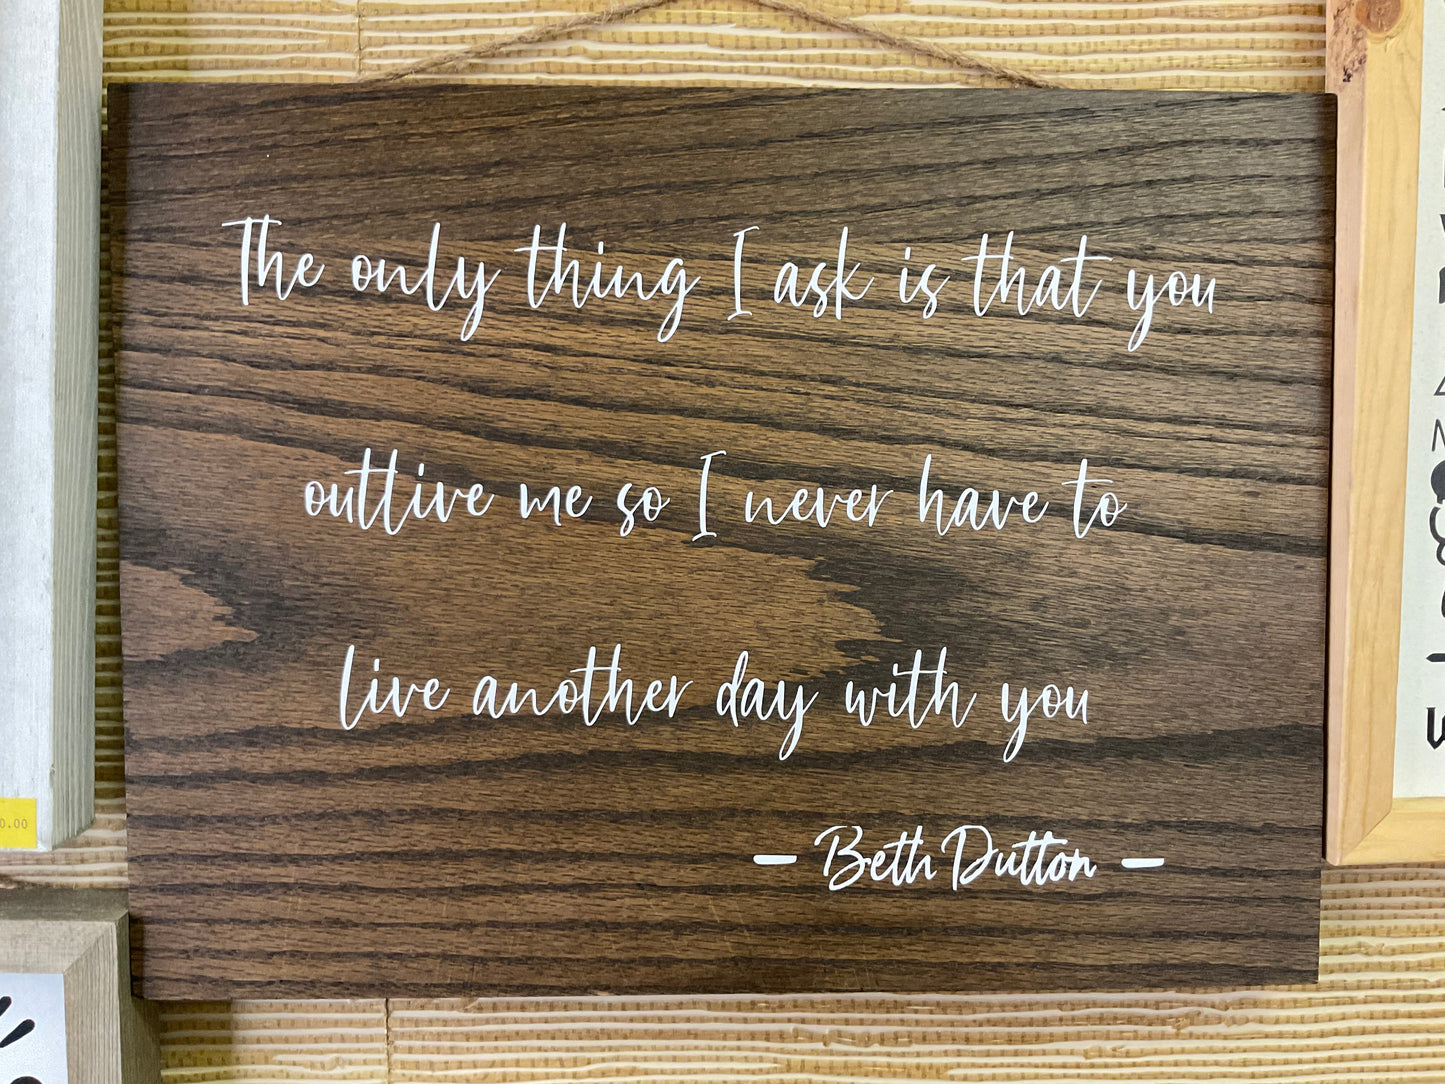 The only thing I ask is that you
outlive me so I never have to
live another day with you
- Beth Dutton -
0.00